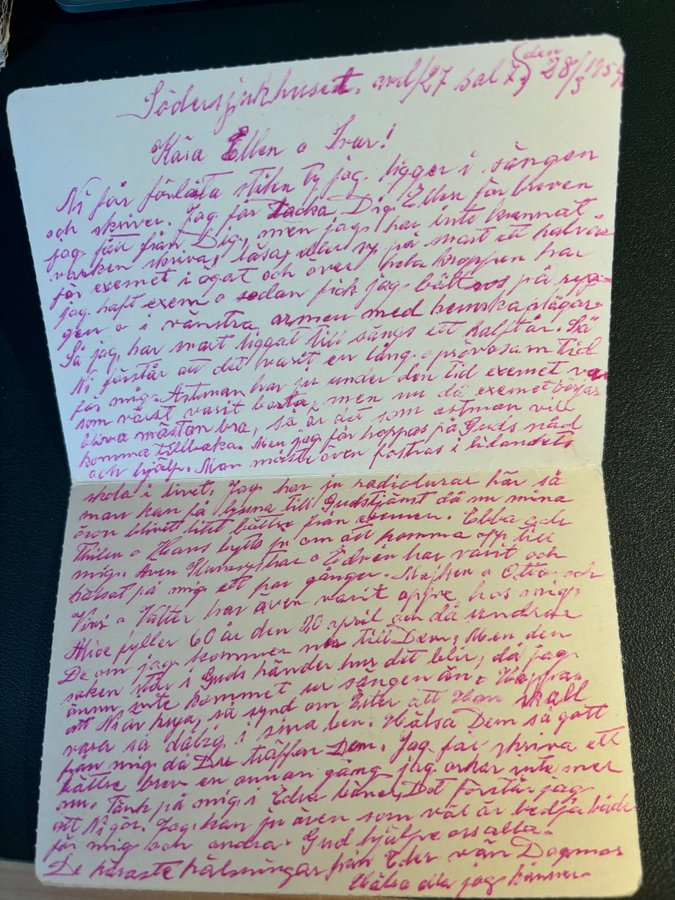 Södersjukhuset. avd/27 sal 7, den 28/3 1954
Kära Ellen o Ivar!
Ni får förlåta stilen ty jag ligger i sängen
och skriver. Jag får tacka Dig Ellen för breven
jag fått från Dig, men jag har inte kunnat
varken skriva, läsa eller sy på snart ett halvår
för exemet i ögat och över hela kroppen har
jag haft exem o sedan fick jag bältros på ryg-
gen o i vänstra armen med hemska plågor.
Så jag har snart liggat till sängs ett halft år. Så
Ni förstår att det varit en lång o prövosam tid
för mig. Astman har ju under den tid exemet var
som värst varit borta, men nu då exemet börjar
bliva nästan bra, så är det som astman vill
komma tillbaka. Men jag får hoppas på Guds nåd
och hjälp. Man måste även fostras i lidandets
skola i livet. Jag har ju radiolurar här så
man kan få lyssna till Gudstjänst då nu mina
öron blivit litet bättre från exemen. Ebba och
Thilén o Hans bytts ju om att komma opp till
mig. Även o Edvin har varit och
hälsat på mig ett par gånger. Majken o Otto och
Vivi o Valter har även varit oppe hos mig.
Alice fyller 60 år den 20 april och då undrar
De om jag kommer till Dem, Men den
saken står i Guds händer hur det blir, då jag
ännu inte kommet ur sängen än. Hoppas
att Ni är krya, så synd om att Han skall
vara så dålig i sina ben. Hälsa Dem så gott
från mig då Du träffar Dem. Jag får skriva ett
bättre brev en annan gång jag orkar inte mer
nu. Tänk på mig i Edra böner, Det förstår jag
att Ni gör. Jag kan ju även som väl är bedja både
för mig och andra. Gud hjälpe oss alla.
De käraste hälsningar från Eder vän Dagmar
Hälsa alla jag känner.